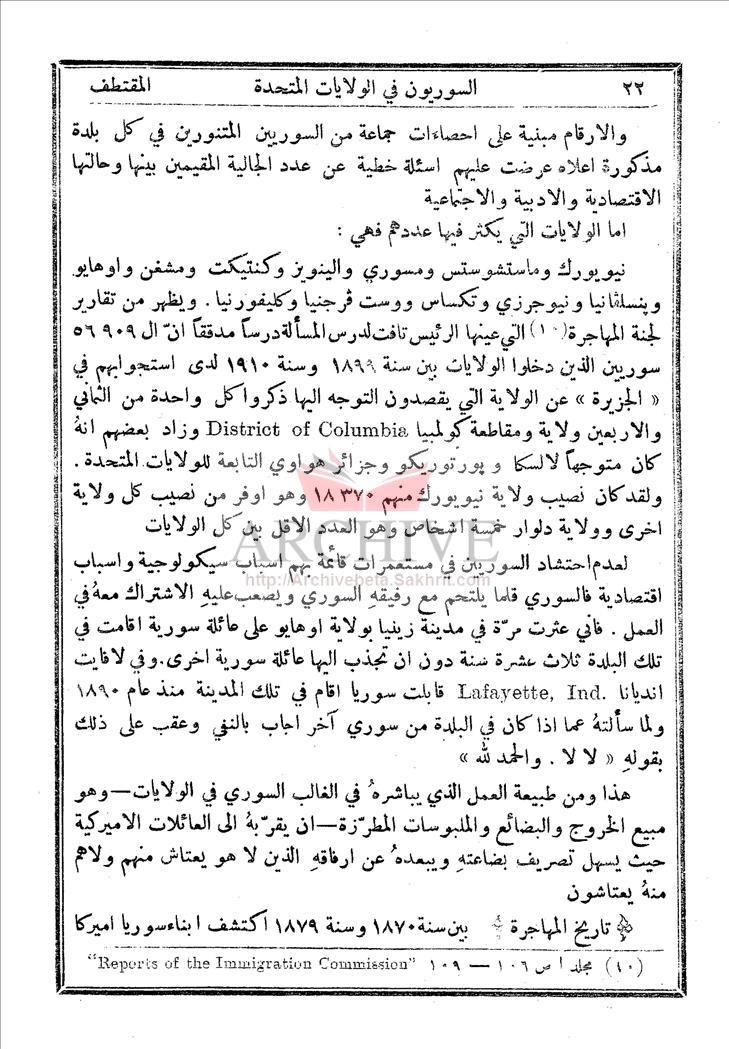 ٢٢ السوريون في الولايات المتحدة المقتطف
والارقام مبنية على احصاءات جماعة من السوريين المتنورين في كل بلدة
مذكورة اعلاه عرضت عليهم اسئلة خطية عن عدد الجالية المقيمين بينها وحالتها
الاقتصادية والادبية والاجتماعية
اما الولايات التي يكثر فيها عددهم فهي :
نيويورك وماستشوستس ومسوري والينويز وكنتيكت ومشغن واوهايو
وپنسلڤانيا ونيوجرزي وتكساس ووست ڤرجنيا وكليفورنيا . ويظهر من تقارير
لجنة المهاجرة (١٠) التي عينها الرئيس تافت لدرس المسألة درساً مدققاً انّ ال ٩٠٩ ٥٦
سوريين الذين دخلوا الولايات بين سنة ١٨٩٩ وسنة ١٩١٠ لدى استجوابهم في
« الجزيرة » عن الولاية التي يقصدون التوجه اليها ذكروا كل واحدة من الثماني
والاربعين ولاية ومقاطعة كولمبيا District of Columbia وزاد بعضهم انهُ
كان متوجهاً لالسكا و پورتوريكو وجزائر هواوي التابعة للولايات المتحدة .
ولقد كان نصيب ولاية نيويورك منهم ٣٧٠ ١٨ وهو اوفر من نصيب كل ولاية
اخرى وولاية دلوار خمسة اشخاص وهو العدد الاقل بين كل الولايات
ARCHIVE
http://Archivebeta.Sakhrit.com
لعدم احتشاد السوريين في مستعمرات قائمة بهم اسباب سيكولوجية واسباب
اقتصادية فالسوري قلما يلتحم مع رفيقهِ السوري ويصعب عليهِ الاشتراك معهُ في
العمل . فاني عثرت مرّة في مدينة زينيا بولاية اوهايو على عائلة سورية اقامت في
تلك البلدة ثلاث عشرة سنة دون ان تجذب اليها عائلة سورية اخرى. وفي لافايت
انديانا Lafayette, Ind. قابلت سوريا اقام في تلك المدينة منذ عام ١٨٩٠
ولما سألتهُ عما اذا كان في البلدة من سوري آخر اجاب بالنفي وعقب على ذلك
بقولهِ « لا لا . والحمد لله »
هذا ومن طبيعة العمل الذي يباشرهُ في الغالب السوري في الولايات—وهو
مبيع الخروج والبضائع والملبوسات المطرّزة—ان يقرّبهُ الى العائلات الاميركية
حيث يسهل تصريف بضاعتهِ ويبعدهُ عن ارفاقهِ الذين لا هو يعتاش منهم ولاهم
منهُ يعتاشون
﴿ تاريخ المهاجرة ﴾ بين سنة ١٨٧٠ وسنة ١٨٧٩ اكتشف ابناء سوريا اميركا
(١٠) مجلد ١ ص ١٠٦ — ١٠٩ "Reports of the Immigration Commission"